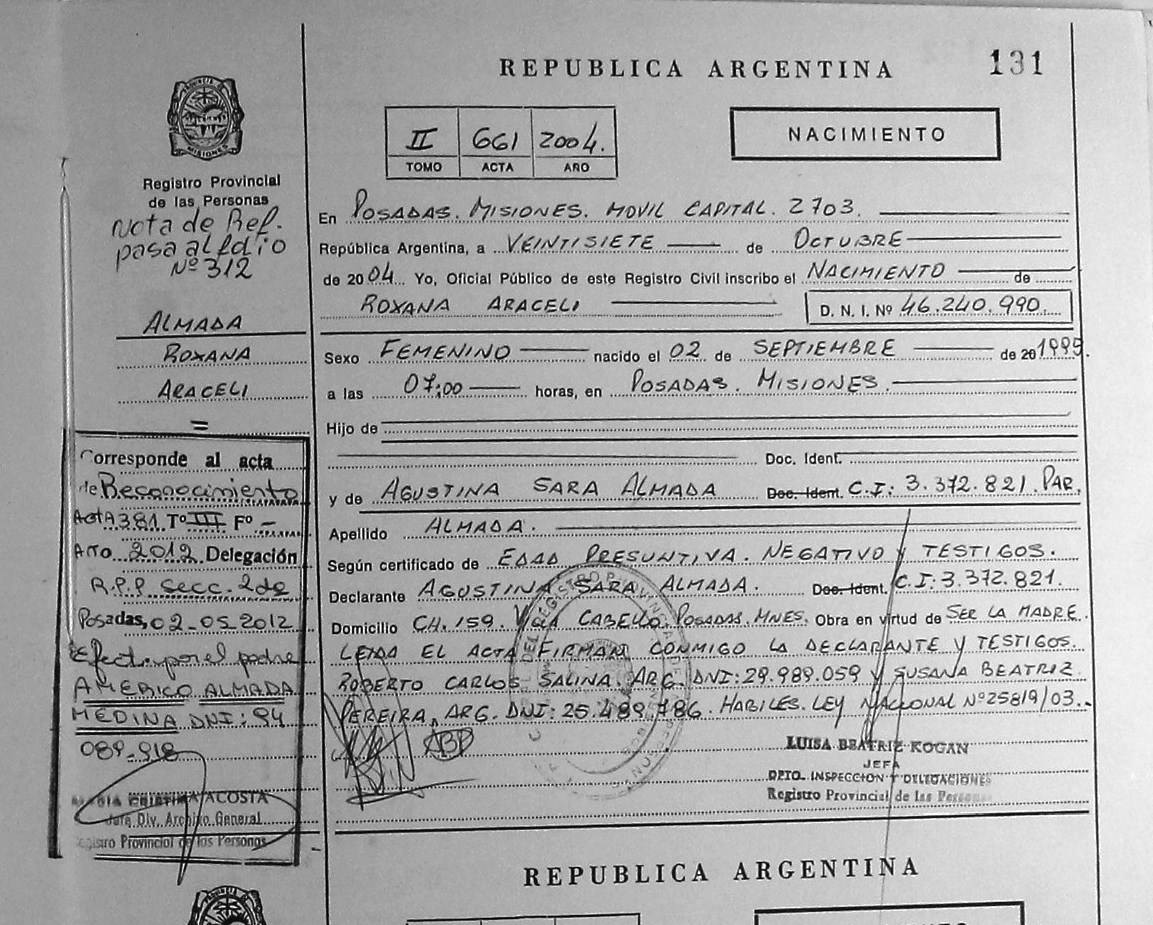 REPUBLICA ARGENTINA
131
MISIONES
Registro Provincial
de las Personas
Nota de Ref.
pasa al folio
Nº 312
ALMADA
ROXANA
ARACELI
=
Corresponde al acta
de Reconocimiento
Acta 381 Tº III Fº -
Año 2012 Delegación
R.P.P Secc. 2da
Posadas, 02-05-2012
Efect. por el padre
AMERICO ALMADA
MEDINA DNI: 94
089-918
MARIA CRISTINA ACOSTA
Jefa Div. Archivo General
Registro Provincial de las Personas
II 661 2004.
TOMO ACTA AÑO
NACIMIENTO
En POSADAS. MISIONES. MOVIL CAPITAL. 2703.
República Argentina, a VEINTISIETE de OCTUBRE
de 2004. Yo, Oficial Público de este Registro Civil inscribo el NACIMIENTO de
ROXANA ARACELI D. N. I. Nº 46.240.990.
Sexo FEMENINO nacido el 02 de SEPTIEMBRE de 20 1995.
a las 07:00 horas, en POSADAS. MISIONES.
Hijo de
Doc. Ident.
y de AGUSTINA SARA ALMADA Doc. Ident. C.I: 3.372.821 PAR.
Apellido ALMADA.
Según certificado de EDAD PRESUNTIVA. NEGATIVO Y TESTIGOS.
Declarante AGUSTINA SARA ALMADA. Doc. Ident. C.I: 3.372.821.
Domicilio CH. 159. Vª CABELLO. POSADAS. MNES. Obra en virtud de SER LA MADRE
LEIDA EL ACTA FIRMAN CONMIGO LA DECLARANTE Y TESTIGOS.
ROBERTO CARLOS SALINA. ARG. DNI: 29.989.059 Y SUSANA BEATRIZ
PEREIRA, ARG. DNI: 25.489.786. HABILES. LEY NACIONAL Nº 25819/03.
LUISA BEATRIZ KOGAN
JEFA
DPTO. INSPECCION Y DELEGACIONES
Registro Provincial de las Personas
REPUBLICA ARGENTINA